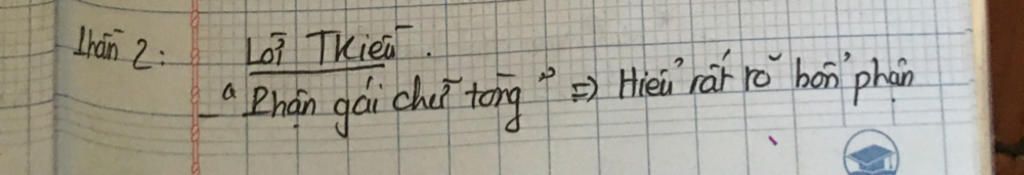 Phần 2: Lời TKiều.
- "Phận gái chữ tòng" => Hiểu rất rõ bổn phận